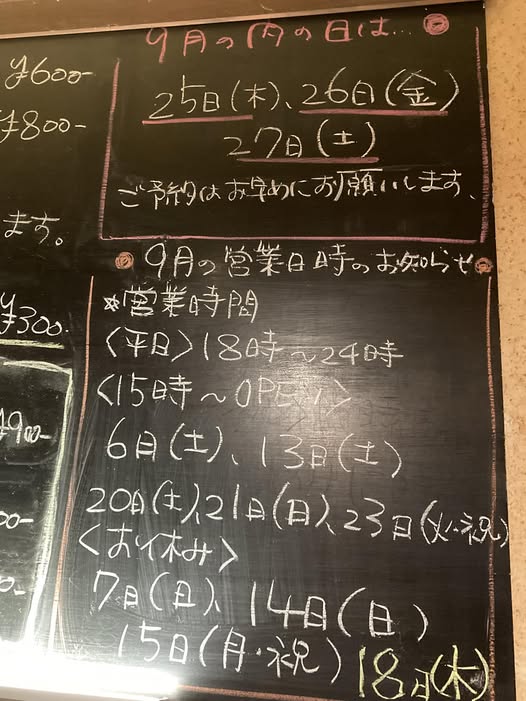 9月の肉の日は…
¥600-
25日(木)、26日(金)
¥800-
27日(土)
ご予約はお早めにお願いします、
ます。
9月の営業日時のお知らせ
☆営業時間
¥300.
〈平日〉18時～24時
〈15時～OPEN〉
6日(土)、13日(土)
20日(土)、21日(日)、23日(火・祝)
〈お休み〉
7日(日)、14日(日)
15日(月・祝) 18日(木)